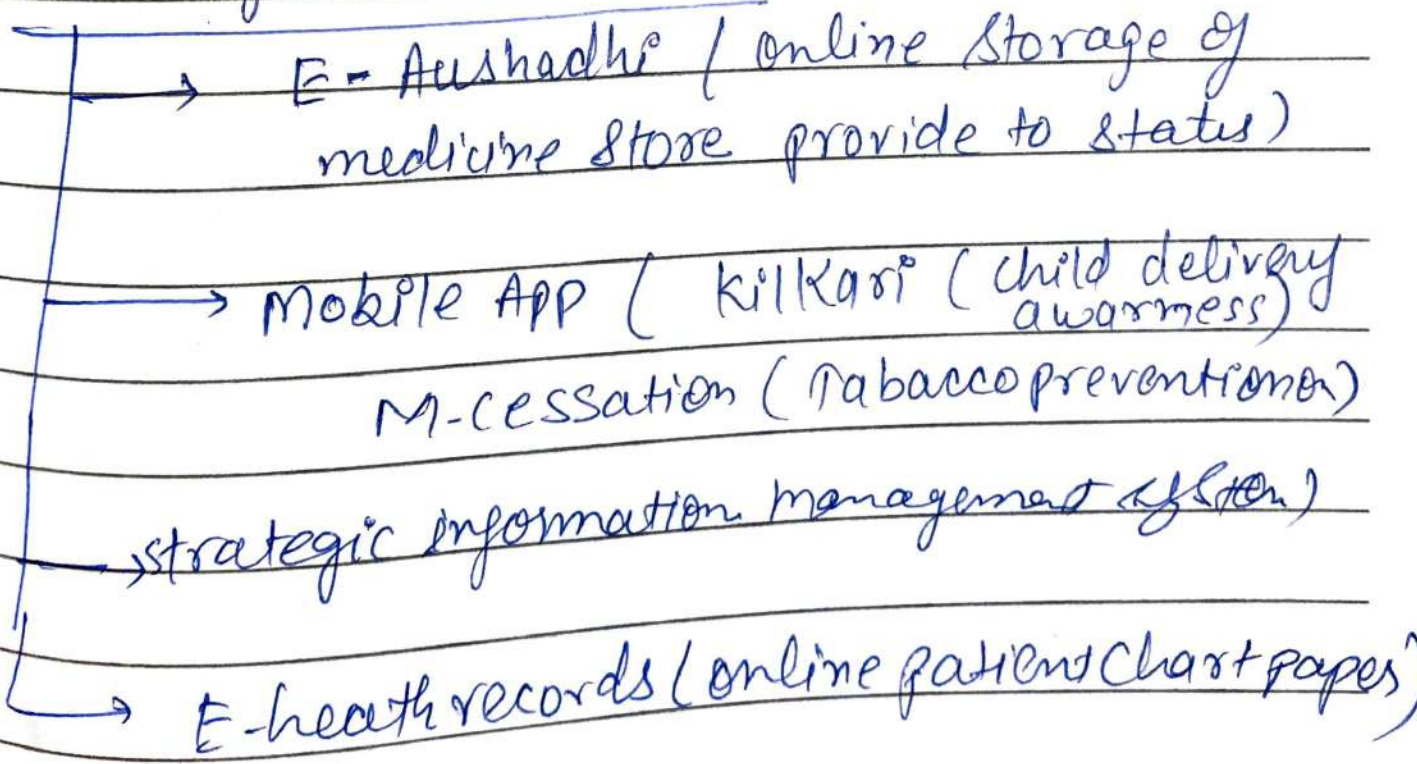 E - Aushadhi ( online storage of
medicine store provide to status)
Mobile App ( Kilkari ( child delivery
awarmess)
M-cessation ( Tabacco prevention)
strategic information management system)
E-heath records ( online patient chart papes)